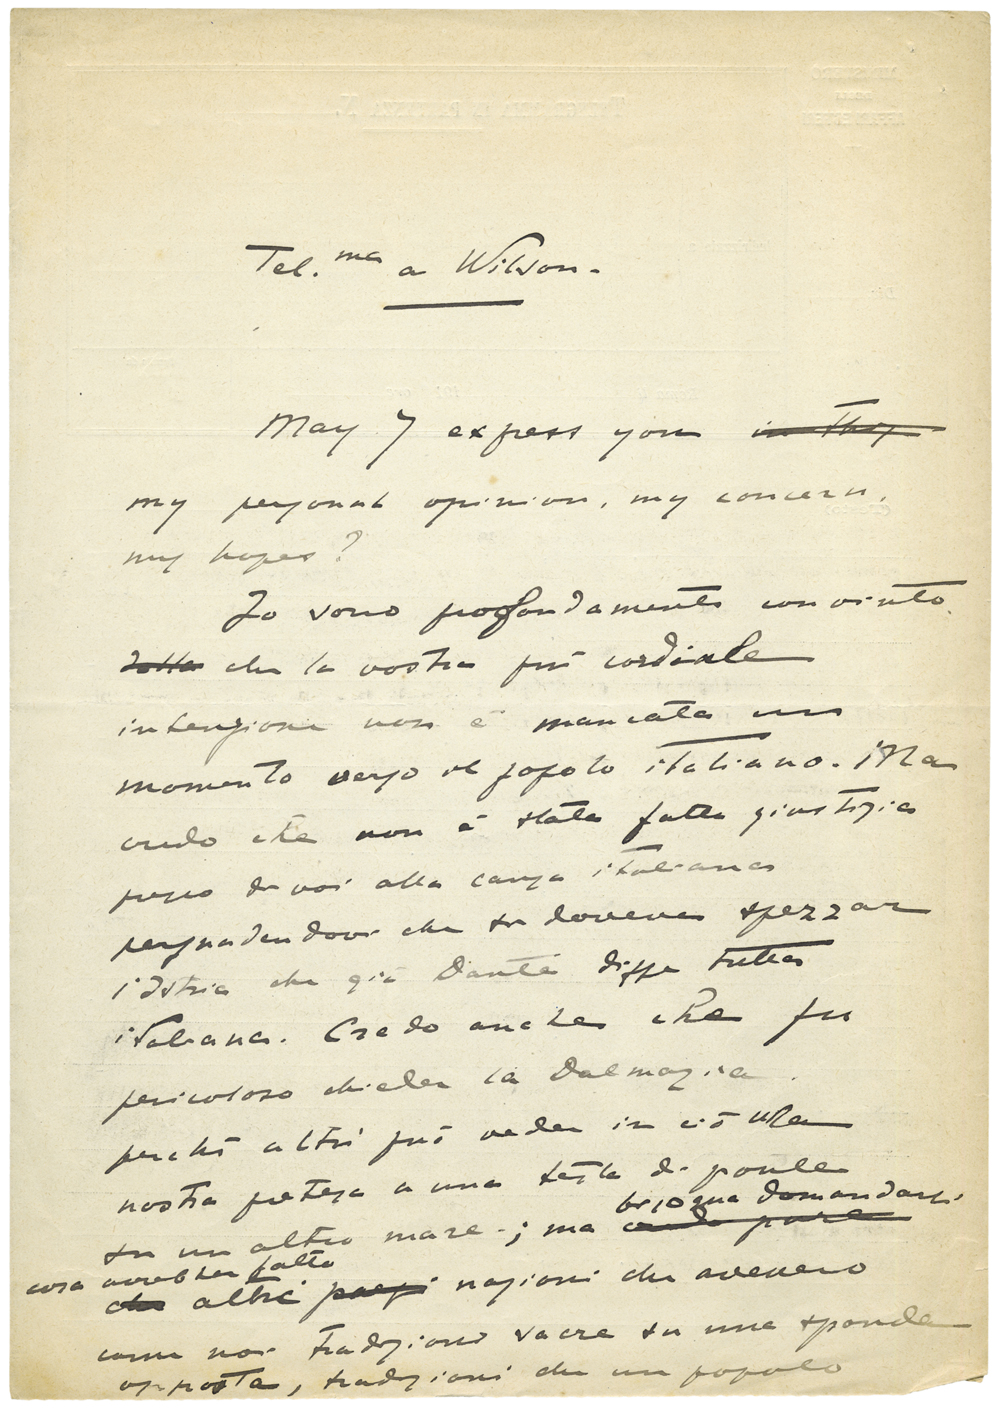 Tel.ma a Wilson.
May I express you in They
my personal opinion, my concern,
my hopes?
Io sono profondamente convinto
che la vostra più cordiale
intenzione non è mancata un
momento verso il popolo italiano. Ma
credo che non è stata fatta giustizia
presso di voi alla causa italiana
persuadendovi che si doveva spezzar
l'Istria che già Dante disse tutta
italiana. Credo anche che fu
pericoloso chieder la Dalmazia.
perché altri può veder in ciò una
nostra pretesa a una testa di ponte
bisogna domandarsi
su un altro mare-; ma credo pure
cosa avrebber fatto
che altri paesi nazioni che avevano
come noi tradizioni sacre su una sponda
opposta, tradizioni che un popolo